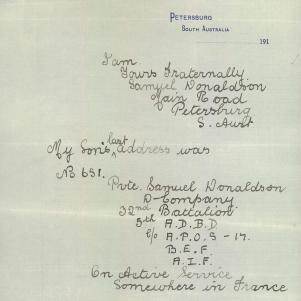 PETERSBURG
SOUTH AUSTRALIA
191
I am
Yours Fraternally
Samuel Donaldson
Main Road
Petersburg
S. Aust
My Son's last address was
No 651.
Pvte. Samuel Donaldson
D-Company
32nd Battalion
5th A.D.B.D
c/o A.P.O, S-17.
B.E.F
A.I.F.
On Active Service
Somewhere in France